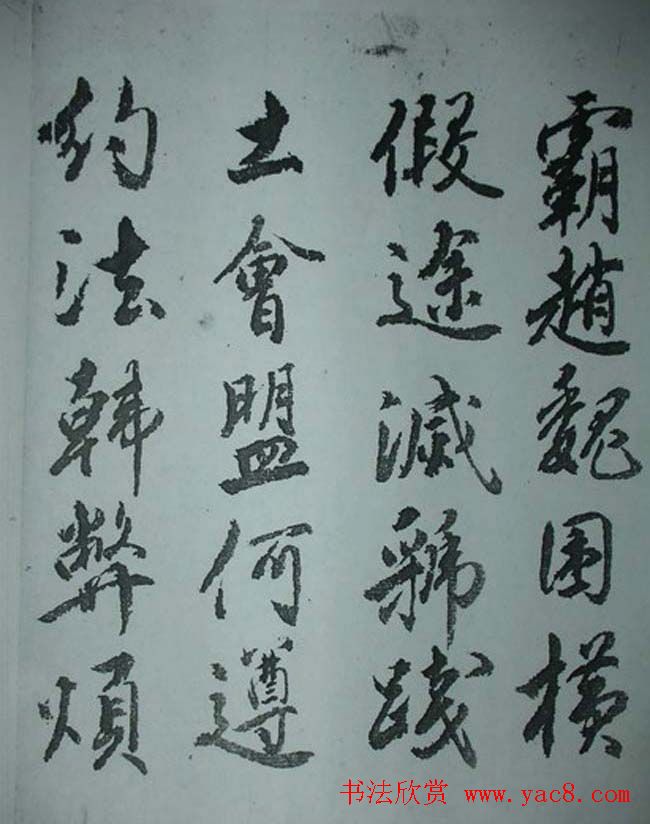 霸趙魏困橫
假途滅虢踐
土會盟何遵
約法韓弊煩
书法欣赏 www.yac8.com